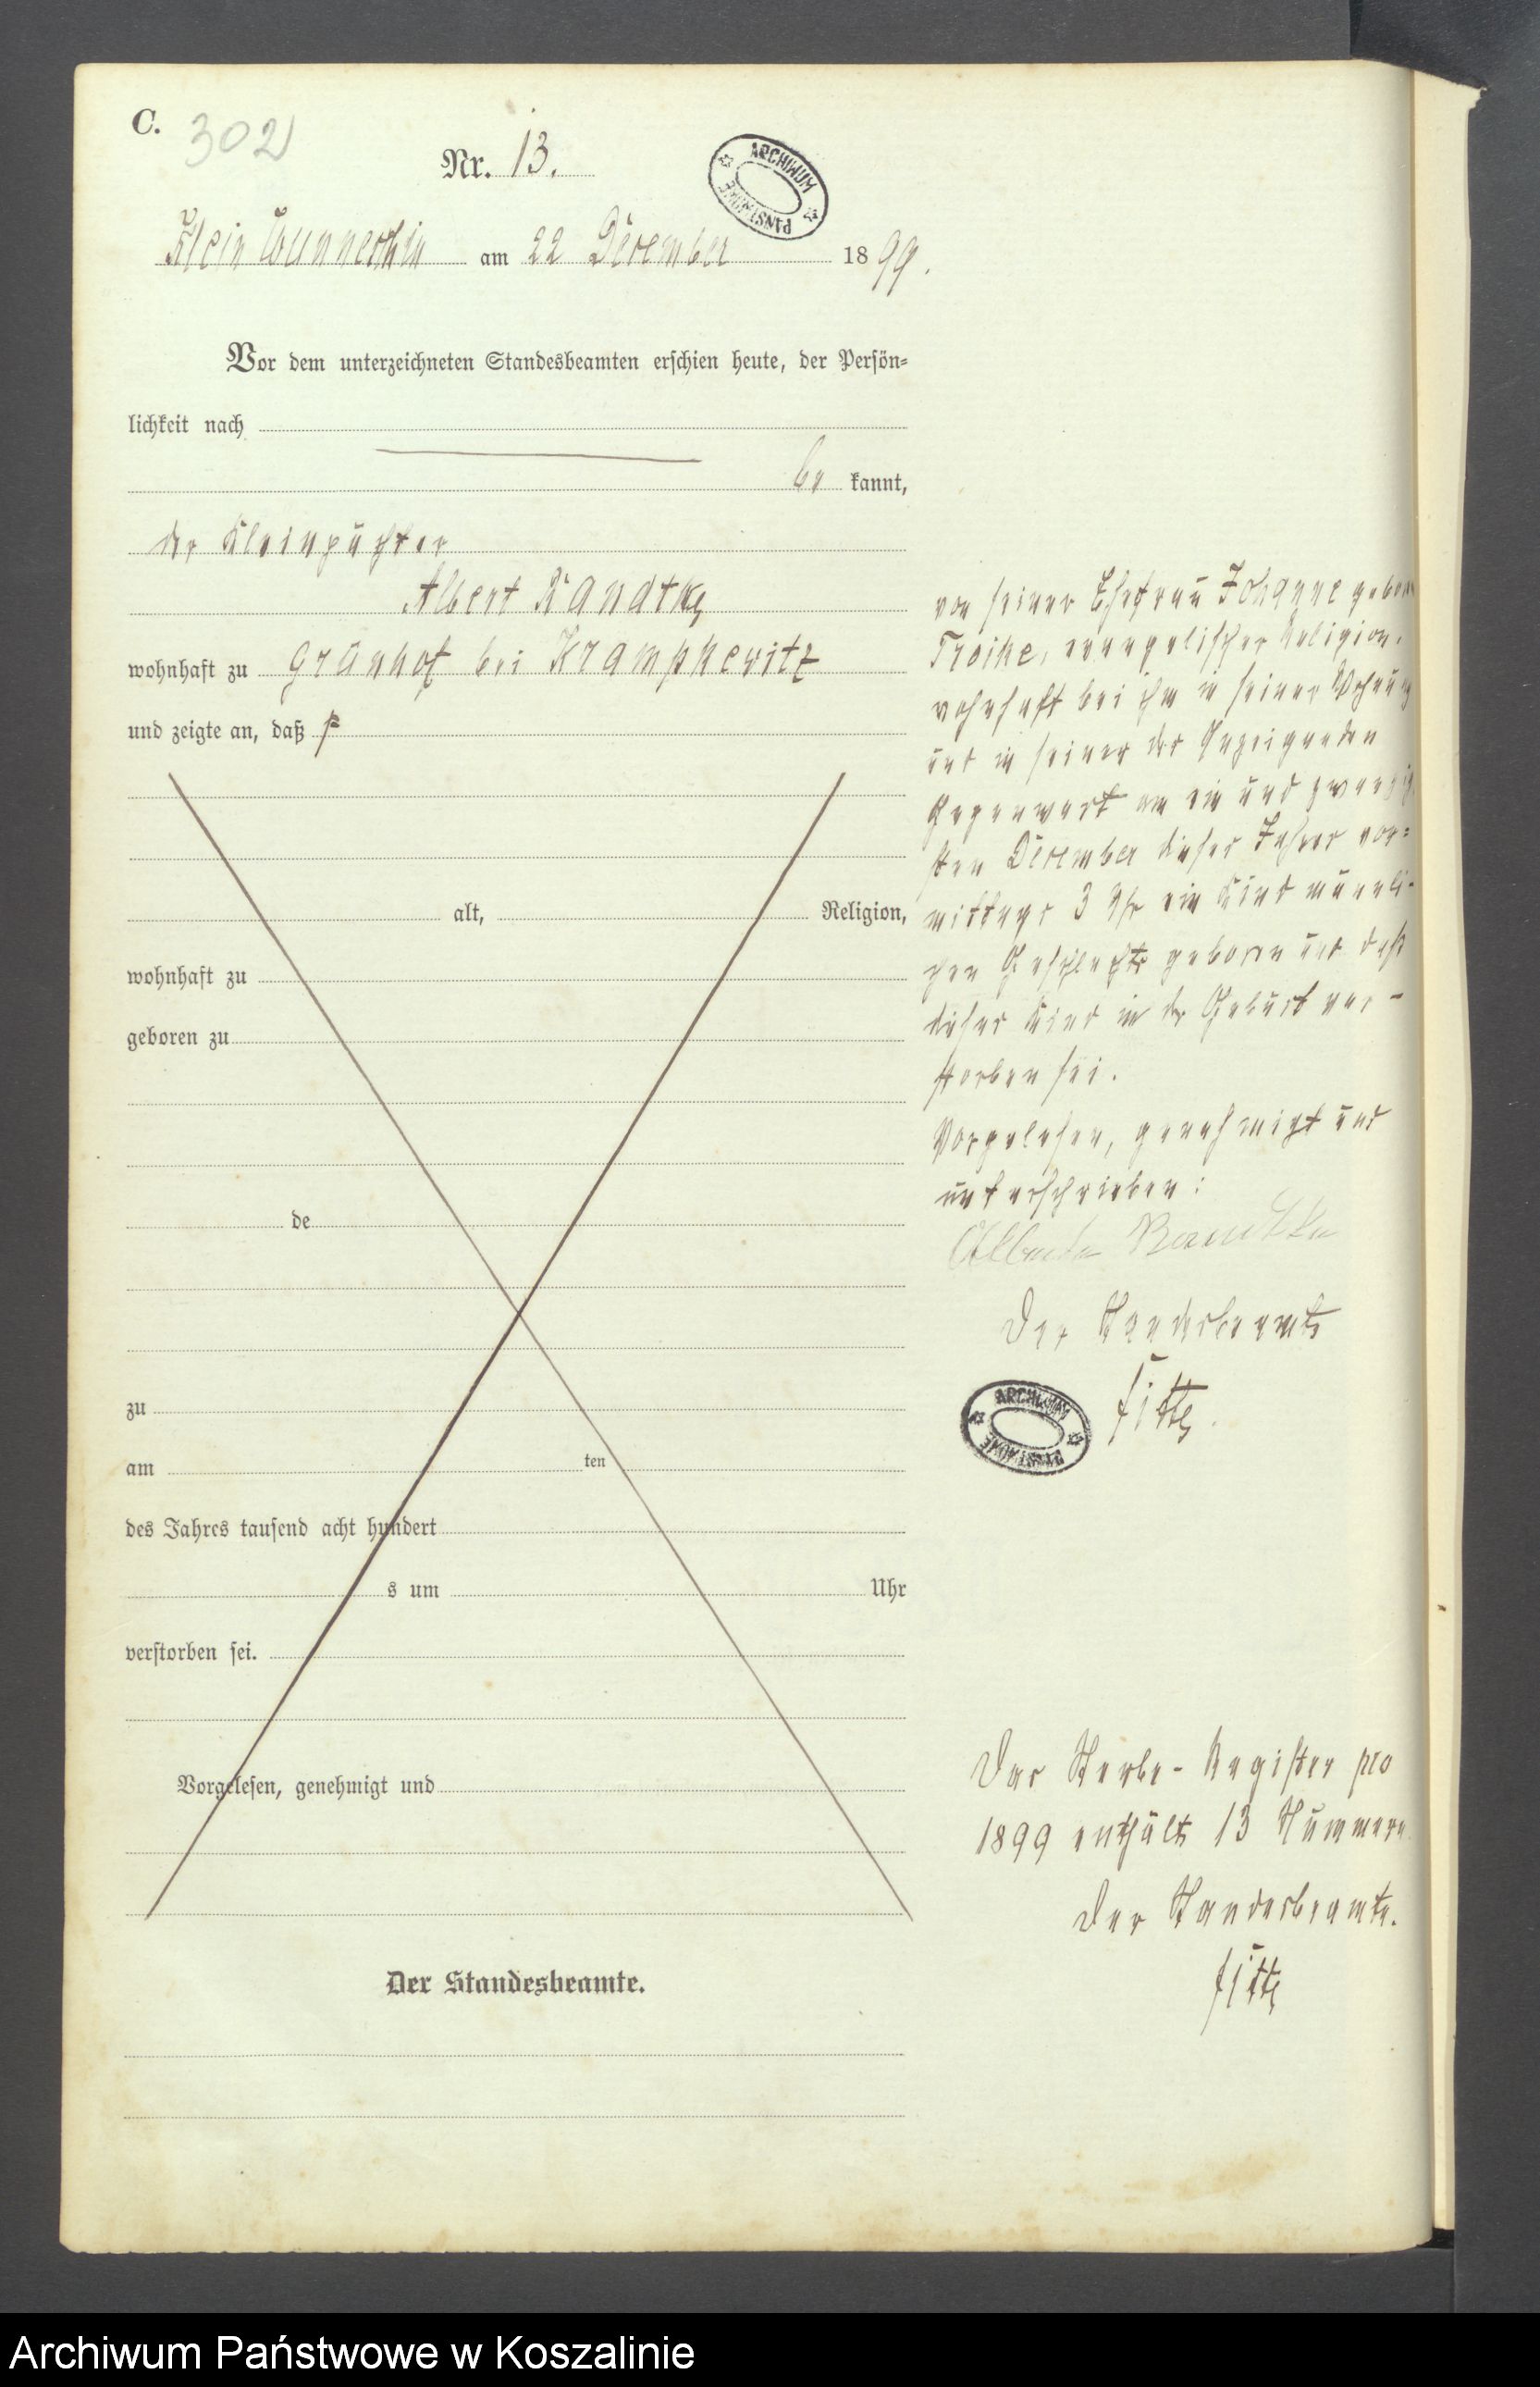 C.
302
Nr. 13.
ARCHIWUM PAŃSTWOWE
Klein Wunneschin am 22 December 1899.
Vor dem unterzeichneten Standesbeamten erschien heute, der Persön-
lichkeit nach
be kannt,
der Kleinpächter
Albert Randtke
wohnhaft zu Grünhof bei Krampkewitz
und zeigte an, daß
alt, Religion,
wohnhaft zu
geboren zu
de
zu
am ten
des Jahres tausend acht hundert
s um Uhr
verstorben sei.
Vorgelesen, genehmigt und
Der Standesbeamte.
von seiner Ehefrau Johanne gebor
Troike, evangelischer Religion,
wohnhaft bei ihm in seiner Wohnung
und in seiner des Anzeigenden
Gegenwart am ein und zwanzig
sten December dieses Jahres vor-
mittags 3 Uhr ein Kind männli-
chen Geschlechts geboren und daß
dieses Kind in der Geburt ver-
storben sei.
Vorgelesen, genehmigt und
unterschrieben:
Albert Randtke
Der Standesbeamte
Fitte.
ARCHIWUM PAŃSTWOWE
Das Sterbe-Register pro
1899 enthält 13 Nummern
Der Standesbeamte.
Fitte
Archiwum Państwowe w Koszalinie